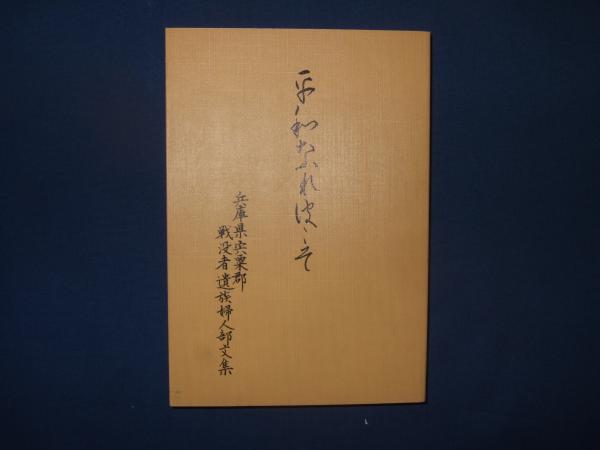 平和なればこそ
兵庫県宍粟郡
戦没者遺族婦人部文集